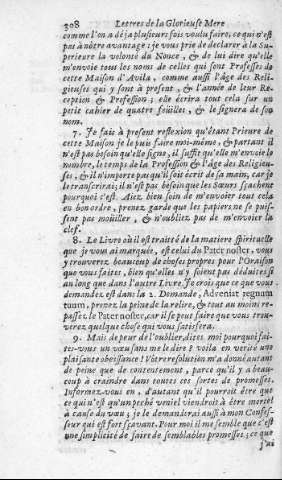 308 Lettres de la Glorieuse Mere
comme l'on a déja plusieurs fois voulu faire, ce qui n'est
pas à nôtre avantage : je vous prie de declarer à la Su-
perieure la volonté du Nonce, & de lui dire qu'elle
m'envoie tous les noms de celles qui sont Professes de
cette Maison d'Avila, comme aussi l'âge des Reli-
gieuses qui y sont à present, & l'année de leur Re-
ception & Profession ; elle écrira tout cela sur un
petit cahier de quatre feuilles, & le signera de son
nom.
7. Je fais à present reflexion qu'étant Prieure de
cette Maison je le puis faire moi-même, & partant il
n'est pas besoin qu'elle signe, il suffit qu'elle m'envoie le
nombre, le temps de la Profession & l'âge des Religieu-
ses, & il n'importe pas qu'il soit écrit de sa main, car je
le transcrirai ; il n'est pas besoin que les Sœurs sçachent
pourquoi c'est. Aiez bien soin de m'envoier tout cela
en bon ordre, prenez garde que les papiers ne se puis-
sent pas moüiller, & n'oubliez pas de m'envoier la
clef.
8. Le Livre où il est traité de la matiere spirituelle
que je vous ai marquée, est celui du Pater noster, vous
y trouverez beaucoup de choses propres pour l'Oraison
que vous faites, bien qu'elles n'y soient pas déduites si
au long que dans l'autre Livre. Je crois que ce que vous
demandez est dans la 2. Demande, Adveniat regnum
tuum, prenez la peine de la relire, & tout au moins re-
passez le Pater noster, car il se peut faire que vous trou-
verez quelque chose qui vous satisfera.
9. Mais de peur de l'oublier, dites moi pourquoi fai-
tes-vous un vœu sans me le dire ? voila en verité une
plaisante obeissance ! Vôtre resolution m'a donné autant
de peine que de contentement, parce qu'il y a beau-
coup à craindre dans toutes ces sortes de promesses.
Informez-vous en, d'autant qu'il pourroit être que
ce qui n'est qu'un peché veniel viendroit à être mortel
à cause du vœu ; je le demanderai aussi à mon Confes-
seur qui est fort sçavant. Pour moi il me semble que c'est
une simplicité de faire de semblables promesses ; ce que
j'ai